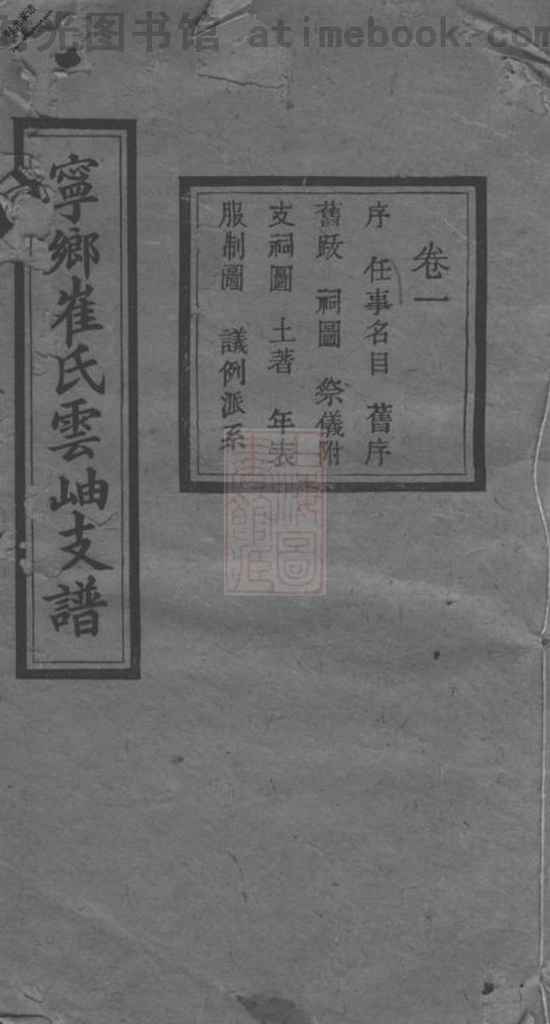 光图书馆 atimebook.com
卷一
序 任事名目 舊序
舊跋 祠圖 祭儀附
支祠圖 土著 年表
服制圖 議例派系
寧鄉崔氏雲岫支譜